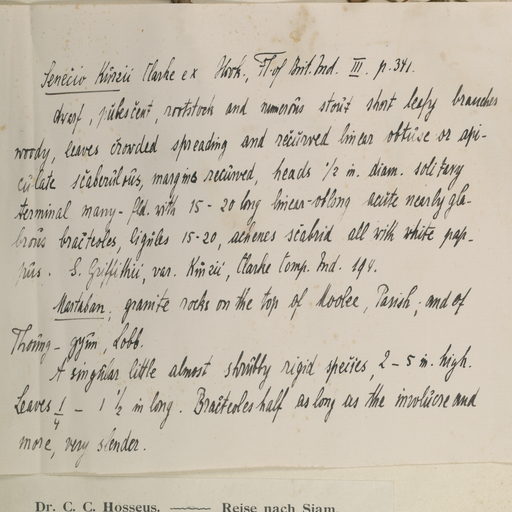 Senecio Kurzii Clarke ex Hook., Fl. of Brit. Ind. III. p. 341.
dwarf, pubescent, rootstock and numerous stout short leafy branches
woody, leaves crowded spreading and recurved linear obtuse or api-
culate scaberulous, margins recurved, heads 1/2 in. diam. solitary
terminal many-fld. with 15-20 long linear-oblong acute nearly gla-
brous bracteoles, ligules 15-20, achenes scabrid all with white pap-
pus. S. Griffithii, var. Kurzii, Clarke Comp. Ind. 194.
Martaban; granite rocks on the top of Moolee, Parish; and of
Thoung-gyun, Lobb.
A singular little almost shrubby rigid species, 2-5 in. high.
Leaves 1/4 - 1 1/2 in long. Bracteoles half as long as the involucre and
more, very slender.
Dr. C. C. Hosseus. —— Reise nach Siam.